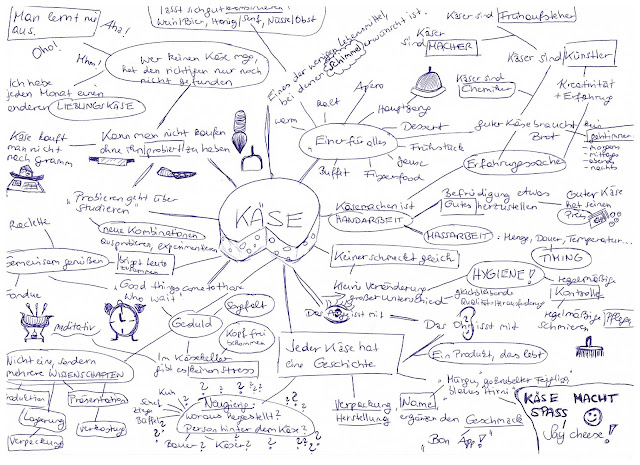 Man lernt nie
aus.
Aha!
Oho!
Mhm!
lässt sich gut kombinieren:
Wein/Bier, Honig/Senf, Nüsse/Obst
Wer keinen Käse mag,
hat den richtigen nur noch
nicht gefunden
Ich habe
jeden Monat einen
anderen LIEBLINGSKÄSE
Käse kauft
man nicht
nach Gramm
Kann man nicht kaufen
ohne ihn probiert zu haben
Einer der wenigen Lebensmittel,
bei denen Schimmel erwünscht ist.
warm
kalt
Apero
Hauptgang
Dessert
Frühstück
Jause
Fingerfood
Buffet
Einer für alles
Käser sind Frühaufsteher
Käser
sind MACHER
Käser sind Künstler
Käser sind
Chemiker
Kreativität
+ Erfahrung
guter Käse braucht kein
Brot
morgens
mittags
abends
nachts
Erfahrungssache
KÄSE
Käsemachen ist
HANDARBEIT
Befriedigung etwas
Gutes herzustellen
Guter Käse
hat seinen
Preis
MASSARBEIT: Menge, Dauer, Temperatur...
TIMING
Keiner schmeckt gleich
kleine Veränderung
großer Unterschied
HYGIENE!
gleichbleibende
Qualität = Herausforderung
regelmäßige
Kontrolle
regelmäßiges
Schmieren
Pflege
Das Auge isst mit
Das Ohr isst mit
Probieren geht über
studieren
neue Kombinationen
ausprobieren, experimentieren
Raclette
Gemeinsam genießen
bringt Leute
zusammen
Fondue
meditativ
Good things come to those
who wait
Geduld
Sorgfalt
Kopf frei
bekommen
Im Käsekeller
gibt es keinen Stress
Nicht ein, sondern
mehrere WISSENSCHAFTEN
Produktion
Lagerung
Verpackung
Präsentation
Verkostung
Kuh
Schaf
Ziege
Büffel
Neugierig:
woraus hergestellt?
Person hinter dem Käse?
Bauer?
Käser?
Jeder Käse hat
eine Geschichte
Ein Produkt, das lebt
Verpackung,
Herstellung
Name
ergänzen den Geschmack
"Bon App!"
KÄSE MACHT
SPASS!
Say cheese!